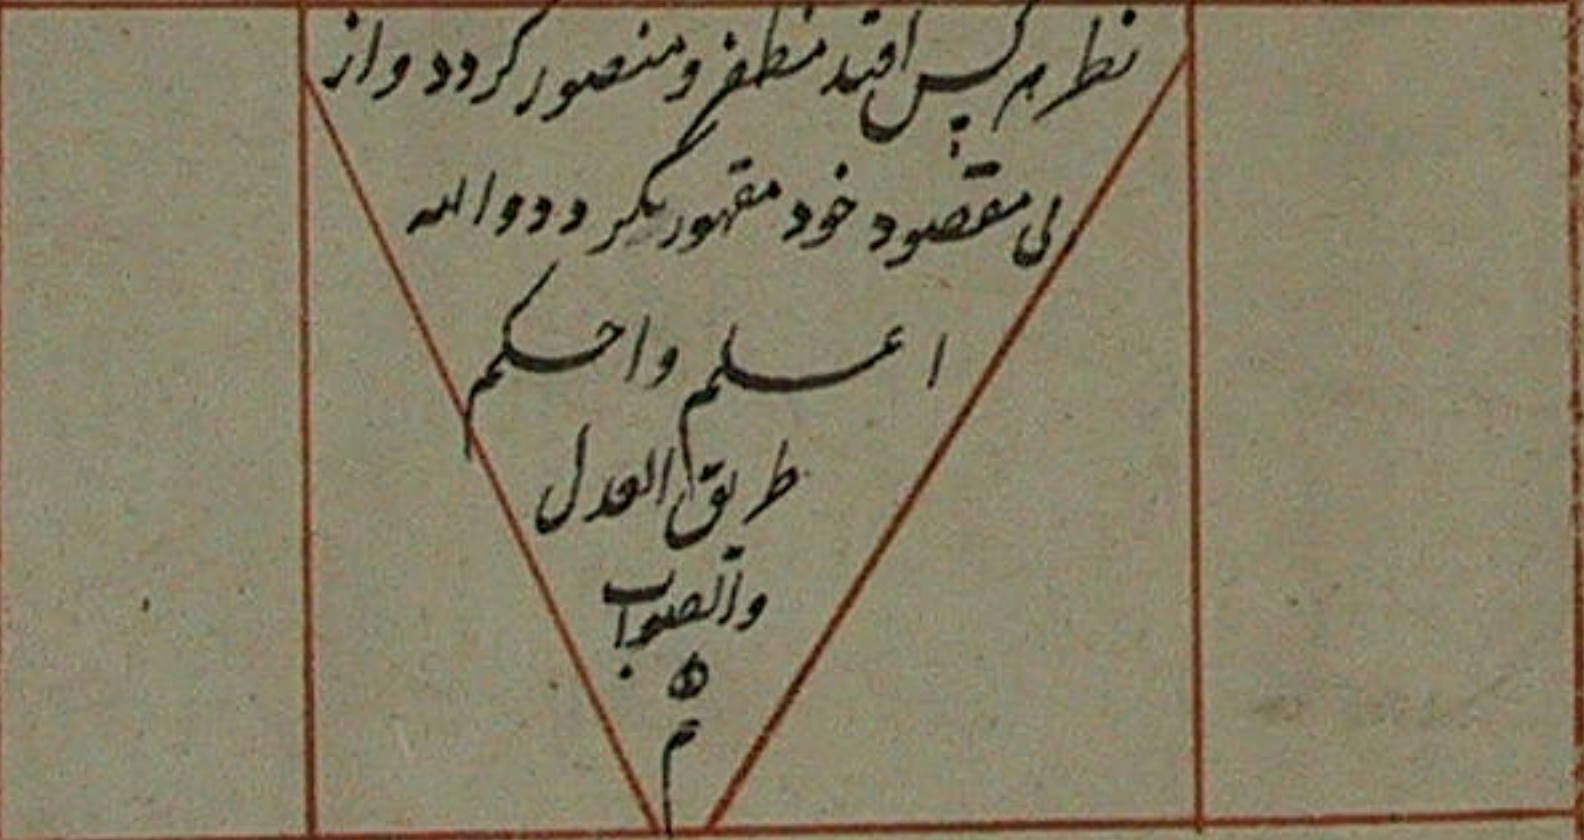 نظرم پس افتد مظفر و منصور گردد و از
بی مقصود خود مقهور نگردد والله
اعلم واحکم
طریق العدل
والصواب
م